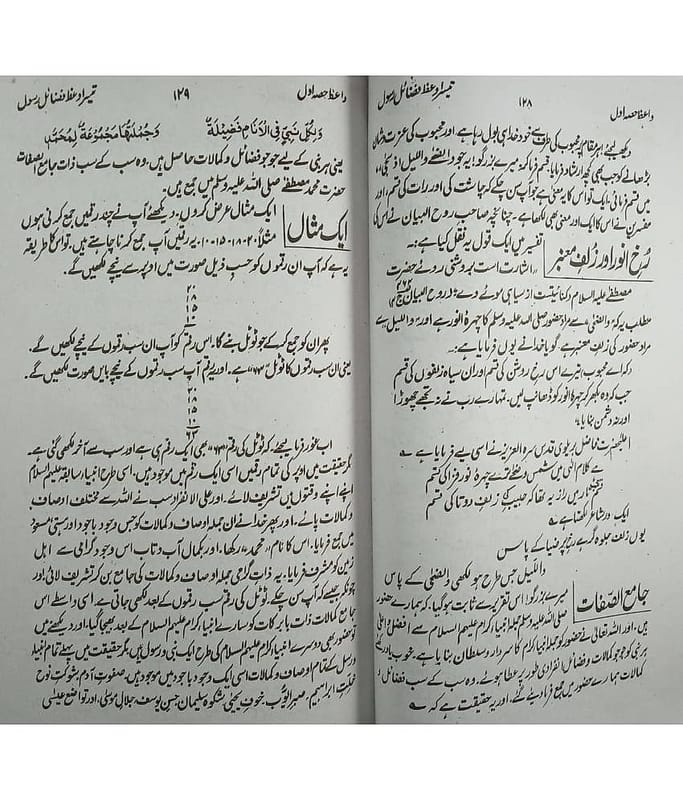 واعظ حصہ اول
۱۲۸
تیسرا وعظ فضائل رسول
دیکھ لیجئے، ہر مقام پر محبوب کی طرف سے خود خدا ہی بول رہا ہے، اور محبوب کی عزت و شان
بڑھانے کو جب بھی کچھ ارشاد فرمایا، قسم فرما کر، میرے بزرگو! یہ جو والضحٰے واللیل اذا سجٰی،
میں قسم فرمائی، ایک تو اس کا یہ معنٰی ہے جو آپ سن چکے کہ چاشت کی اور رات کی قسم، اور
مفسرین نے اس کا ایک اور معنٰی بھی لکھا ہے۔ چنانچہ صاحب روح البیان نے اس کی
رُخِ انور اور زلفِ معنبر
تفسیر میں ایک قول یہ نقل کیا ہے:۔
اشارت است بروشنی روئے حضرت
مصطفٰے علیہ السلام و کنایت است از سیاہی موئے وے (روح البیان
مطلب یہ کہ والضحٰی سے مراد حضور صلی اللہ علیہ وسلم کا چہرۂ انور ہے اور واللیل سے
مراد حضور کی زلفِ معنبر ہے گویا خدا نے یوں فرمایا ہے:۔
کہ اے محبوب! تیرے اس رخ روشن کی قسم اور ان سیاہ زلفوں کی قسم
جب کہ وہ بکھر کر چہرۂ انور کو ڈھانپ لیں۔ تمہارے رب نے نہ تجھے چھوڑا
اور نہ دشمن بنایا۔
اعلیٰحضرت فاضل بریلوی قدس سرہ العزیز نے اسی لیے فرمایا ہے
ہے کلام الٰہی میں شمس و ضحٰے ترے چہرۂ نور فزا کی قسم
قسم شبِ تار میں راز یہ تھا کہ حبیب کی زلفِ دوتا کی قسم
ایک اور شاعر لکھتا ہے
یوں زلف جلوہ گر ہے رخِ پر ضیا کے پاس
واللیل جس طرح ہو لکھی والضحٰی کے پاس
جامع الصفات
میرے بزرگو! اس تقریر سے ثابت ہو گیا کہ ہمارے حضور
صلی اللہ علیہ وسلم جملہ انبیاء کرام علیہم السلام سے افضل و اعلٰی
ہیں۔ اور اللہ تعالٰی نے حضور کو جملہ انبیاء کرام کا سردار و سلطان بنایا ہے۔ خوب یاد رکھئے
ہر نبی کو جو جو کمالات و فضائل انفرادی طور پر عطا ہوئے وہ سب کے سب فضائل و
کمالات ہمارے حضور میں جمع فرما دیئے گئے، اور یہ حقیقت ہے کہ
واعظ حصہ اول
۱۲۹
تیسرا وعظ فضائل رسول
وَلِكُلِّ نَبِيٍّ فِي الْأَنَامِ فَضِيلَةٌ وَجُمْلَتُهَا مَجْمُوعَةٌ لِمُحَمَّدٍ
یعنی ہر نبی کے لیے جو جو فضائل و کمالات حاصل ہیں، وہ سب کے سب ذات جامع الصفات
حضرت محمد مصطفٰے صلی اللہ علیہ وسلم میں جمع ہیں۔
ایک مثال
ایک مثال عرض کروں۔ دیکھئے آپ نے چند رقمیں جمع کرنی ہوں
مثلاً ۲۰۔۱۸۔۱۵۔۱۰ یہ رقمیں آپ جمع کرنا چاہتے ہیں، تو اس کا طریقہ
یہ ہے کہ آپ ان رقموں کو حسب ذیل صورت میں اوپر نیچے لکھیں گے۔
۲۰
۱۸
۱۵
۱۰
پھر ان کو جمع کر کے جو ٹوٹل بنے گا۔ اس رقم کو آپ ان سب رقموں کے نیچے لکھیں گے۔
یعنی ان سب رقموں کا ٹوٹل "۶۳" ہے۔ اور یہ رقم آپ سب رقموں کے نیچے بایں صورت لکھیں گے۔
۲۰
۱۸
۱۵
۱۰
۶۳
اب غور فرما لیجئے، کہ ٹوٹل کی رقم "۶۳" بھی ایک رقم ہی ہے اور سب سے آخر لکھی گئی ہے۔
مگر حقیقت میں اوپر کی تمام رقمیں اسی ایک رقم میں موجود ہیں۔ اسی طرح انبیاء سابقہ علیہم السلام
اپنے اپنے وقتوں میں تشریف لائے۔ اور علی الانفراد سب نے اللہ سے مختلف اوصاف
و کمالات پائے۔ اور پھر خدا نے ان جملہ اوصاف و کمالات کو جس وجود باجود اور ہستی مسعود
میں جمع فرمایا۔ اس کا نام "محمد" رکھا، اور بکمال آب و تاب اس وجود گرامی سے اہل
زمین کو مشرف فرمایا۔ یہ ذات گرامی جملہ اوصاف و کمالات کی جامع بن کر تشریف لائی اور
چونکہ جیسے کہ آپ سن چکے۔ ٹوٹل کی رقم سب رقموں کے بعد لکھی جاتی ہے۔ اسی واسطے اس
جامع کمالات ذات بابرکات کو سارے انبیاء کرام علیہم السلام کے بعد بھیجا گیا، اور دیکھنے میں
تو حضور بھی دوسرے انبیاء کرام علیہم السلام کی طرح ایک نبی و رسول ہیں، مگر حقیقت میں پہلے تمام انبیاء
و رسل کے تمام اوصاف و کمالات اسی ایک وجود باجود میں موجود ہیں۔ صفوتِ آدم، شوکتِ نوح
خلتِ ابراہیم، صبرِ ایوب، خوفِ یحیٰی، شکوہ سلیمان، حسنِ یوسف، جلالِ موسٰی، اور تواضع عیسٰی